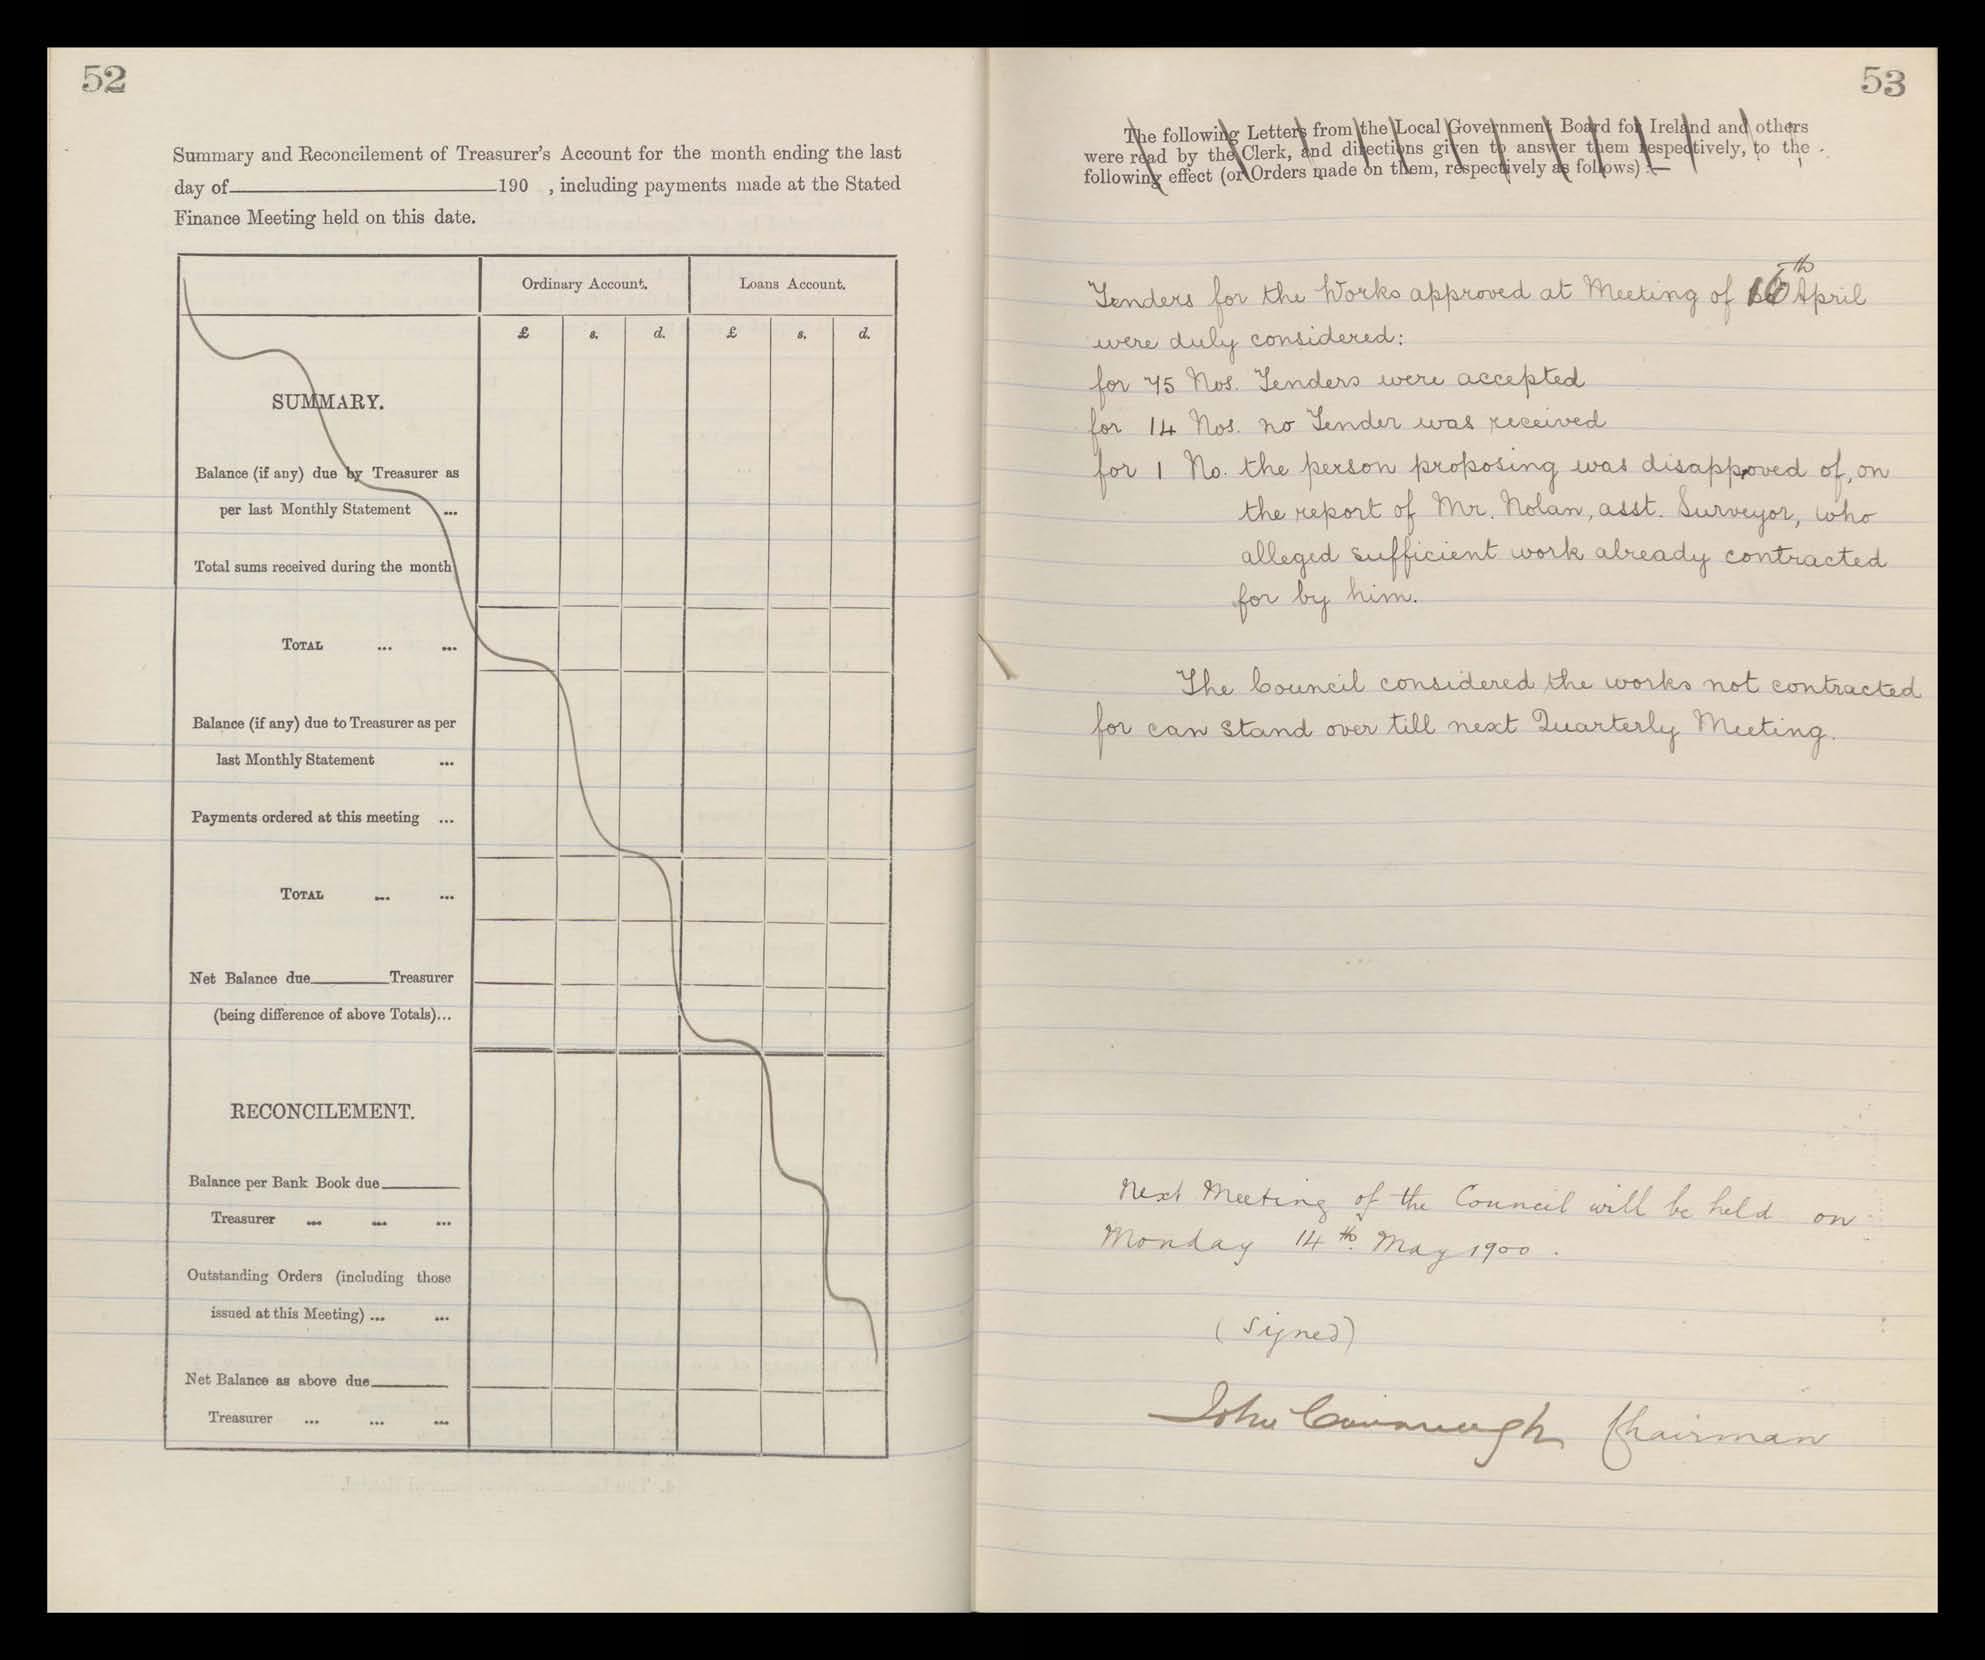 52
Summary and Reconcilement of Treasurer's Account for the month ending the last
day of 190 , including payments made at the Stated
Finance Meeting held on this date.
Ordinary Account. Loans Account.
£ s. d. £ s. d.
SUMMARY.
Balance (if any) due by Treasurer as
per last Monthly Statement ...
Total sums received during the month
TOTAL ... ...
Balance (if any) due to Treasurer as per
last Monthly Statement ...
Payments ordered at this meeting ...
TOTAL ... ...
Net Balance due Treasurer
(being difference of above Totals)...
RECONCILEMENT.
Balance per Bank Book due
Treasurer ... ... ...
Outstanding Orders (including those
issued at this Meeting) ... ...
Net Balance as above due
Treasurer ... ... ...
53
The following Letters from the Local Government Board for Ireland and others
were read by the Clerk, and directions given to answer them respectively, to the
following effect (or Orders made on them, respectively as follows) :—
Tenders for the Works approved at Meeting of 16th April
were duly considered:
for 75 Nos. Tenders were accepted
for 14 Nos. no Tender was received
for 1 No. the person proposing was disapproved of, on
the report of Mr. Nolan, asst. Surveyor, who
alleged sufficient work already contracted
for by him.
The Council considered the works not contracted
for can stand over till next Quarterly Meeting.
Next Meeting of the Council will be held on
Monday 14th May 1900.
(Signed)
John Cavanaugh Chairman